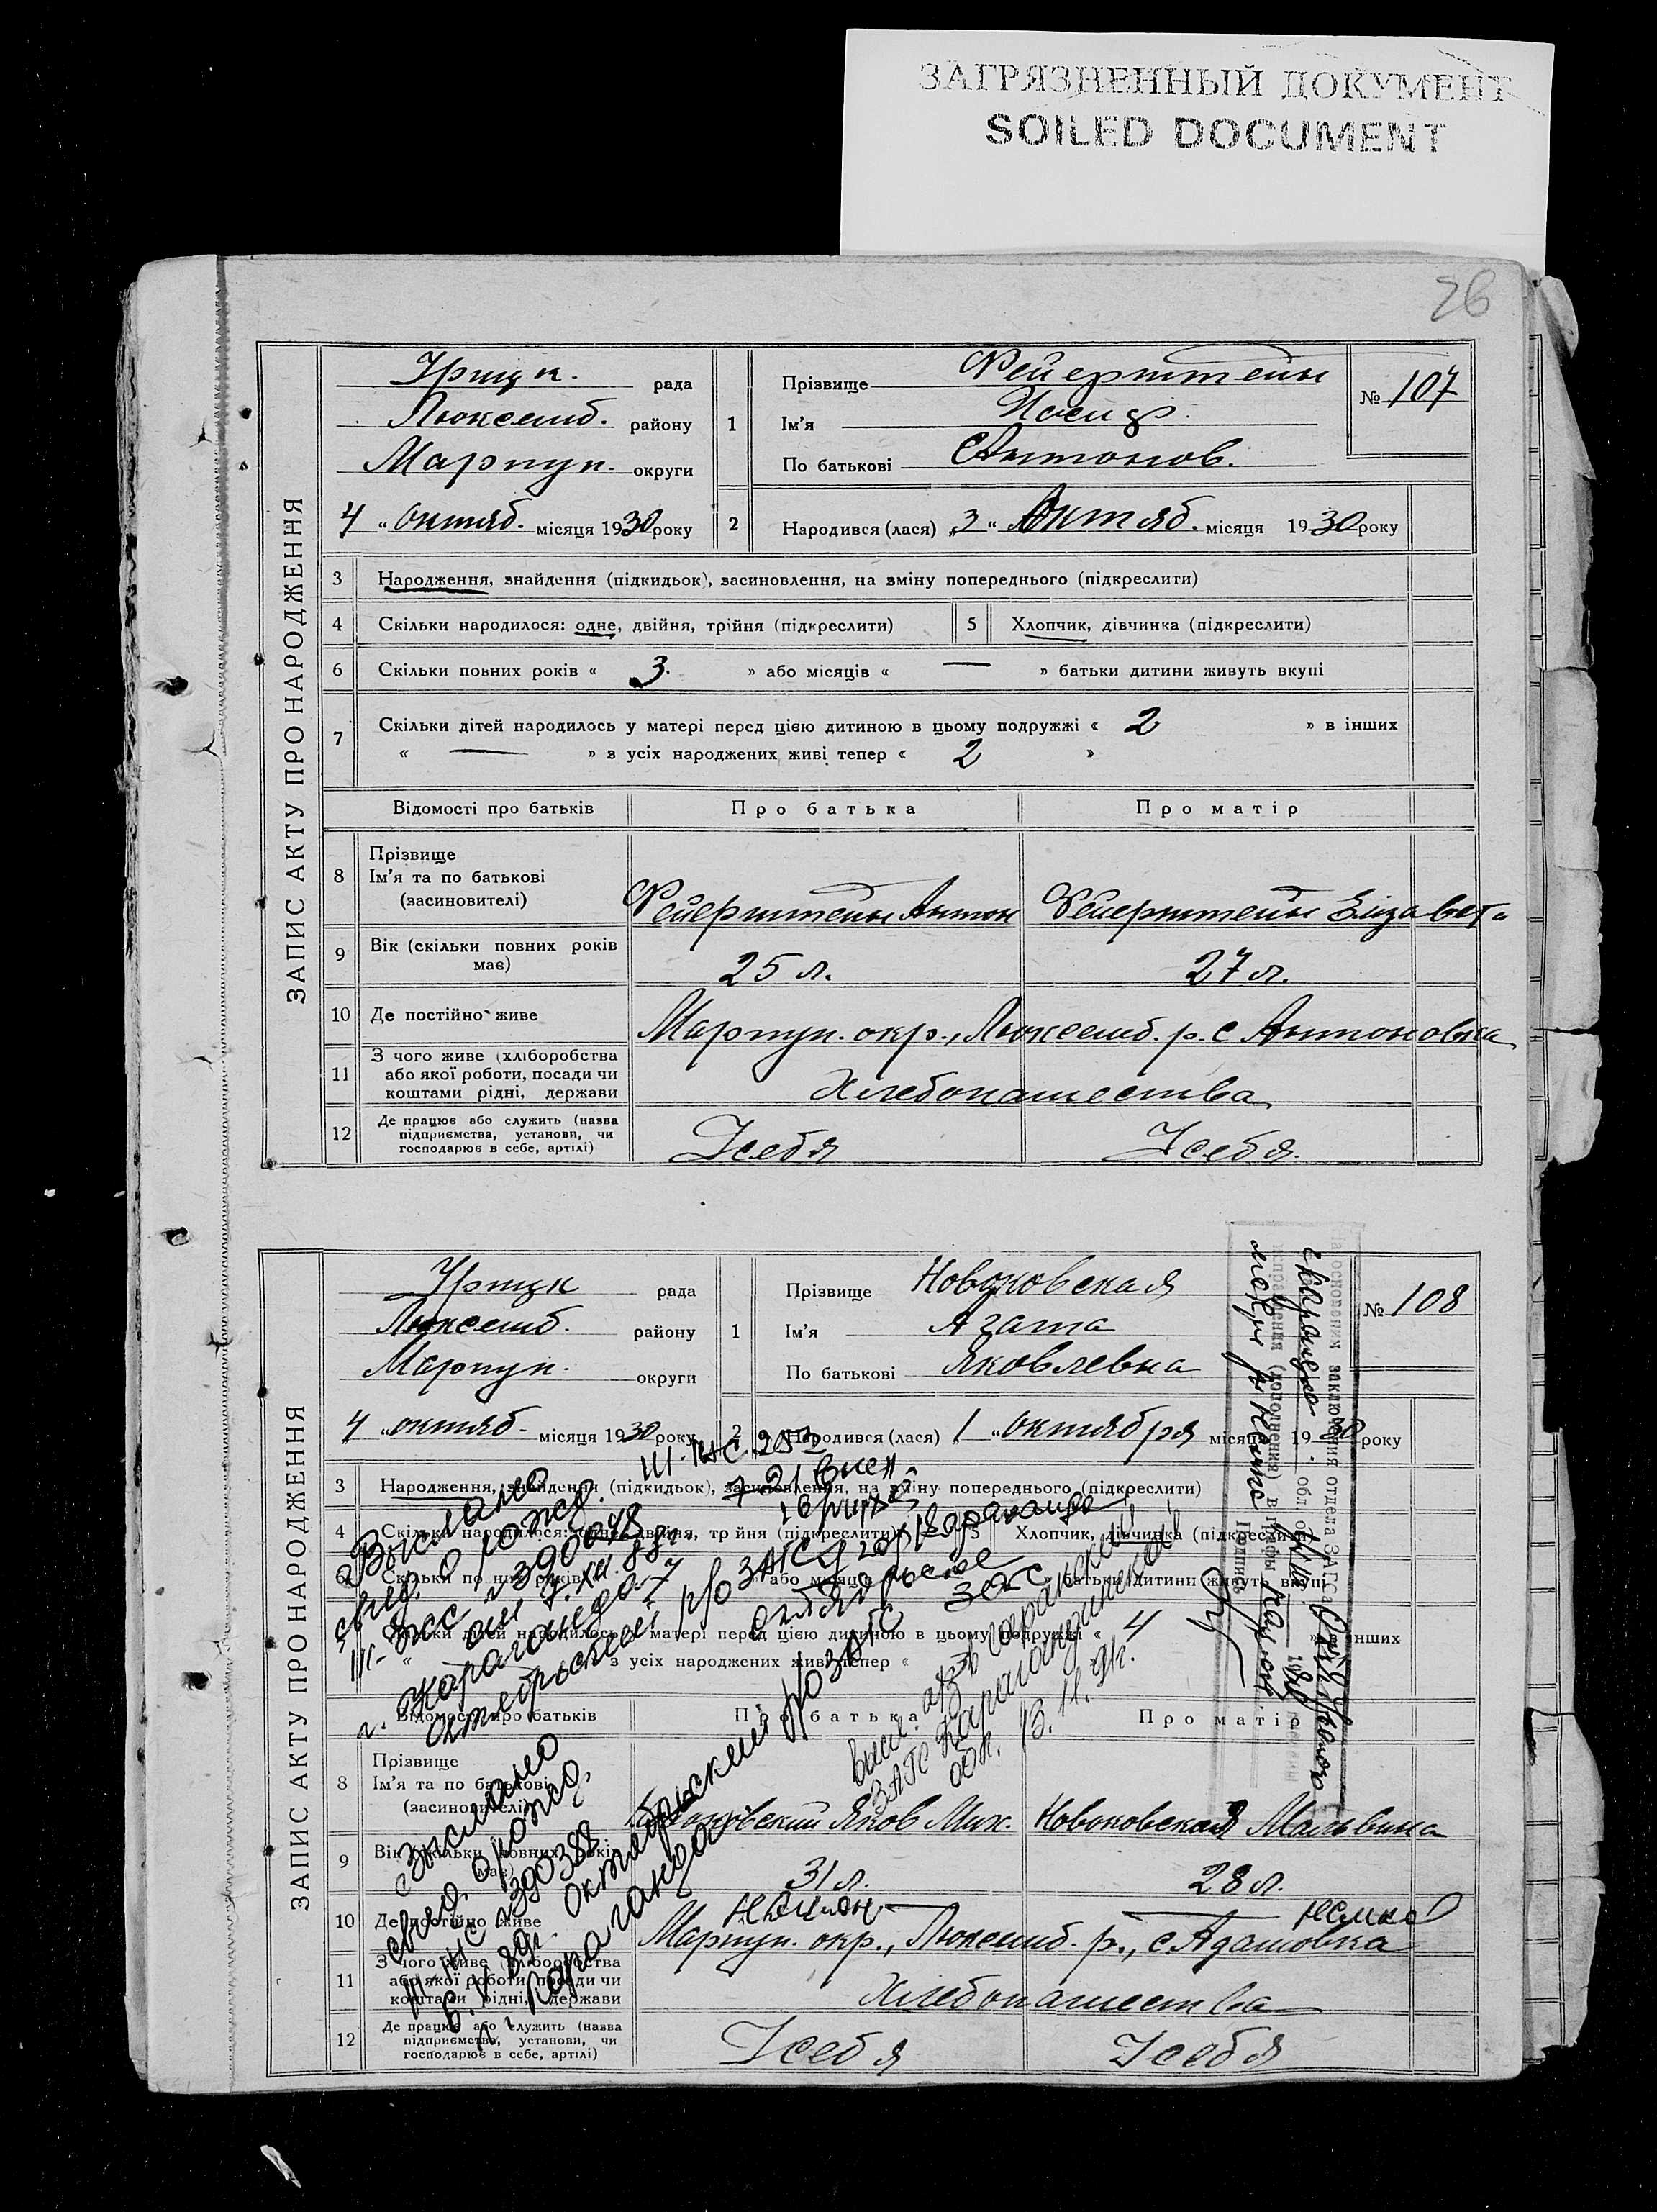 ЗАГРЯЗНЕННЫЙ ДОКУМЕНТ
SOILED DOCUMENT
ЗАПИС АКТУ ПРО НАРОДЖЕННЯ
Урицк. рада
Люксемб. району
Марпуп. округи
4 „ октяб. місяця 1930 року
1 Прізвище Фейерштейн
Ім'я Иосиф.
По батькові Антонов.
№ 107
2 Народився (лася) „3 “ Октяб. місяця 1930 року
3 Народження, знайдення (підкидьок), засиновлення, на зміну попереднього (підкреслити)
4 Скільки народилося: одне, двійня, трійня (підкреслити) 5 Хлопчик, дівчинка (підкреслити)
6 Скільки повних років « 3. » або місяців « — » батьки дитини живуть вкупі
7 Скільки дітей народилось у матері перед цією дитиною в цьому подружжі « 2 » в інших
« — » з усіх народжених живі тепер « 2 »
Відомості про батьків Про батька Про матір
8 Прізвище
Ім'я та по батькові
(засиновителі)
Фейерштейн Антон Фейерштейн Елізавета
9 Вік (скільки повних років
має)
25 л. 27 л.
10 Де постійно живе Марпуп. окр., Люксемб. р. с Антоновка
11 З чого живе (хліборобства
або якої роботи, посади чи
коштами рідні, держави
Хлебопашества
12 Де працює або служить (назва
підприємства, установи, чи
господарює в себе, артілі)
У себя У себя.
ЗАПИС АКТУ ПРО НАРОДЖЕННЯ
Урицк рада
Люксемб. району
Марпуп. округи
4 „ октяб- місяця 1930 року
1 Прізвище Новоковская
Ім'я Агата
По батькові Яковлевна
№ 108
2 Народився (лася) „1 “ октября місяця 1930 року
3 Народження, знайдення (підкидьок), засиновлення, на зміну попереднього (підкреслити)
4 Скільки народилося: одне, двійня, трійня (підкреслити) 5 Хлопчик, дівчинка (підкреслити)
6 Скільки повних років або місяців батьки дитини живуть вкупі
7 Скільки дітей народилось у матері перед цією дитиною в цьому подружжі « 4 в інших
« з усіх народжених живі тепер «
Выслано
свид. о рожд.
Октябрьский р/о ЗАГС г. Караганда
Выслано
свид. о рожд.
III-ЖС №390388
Октябрьский р/о ЗАГС
г. Караганда
ЗАГС Карагандинской
обл. 13. 11. 91г.
Відомості про батьків Про батька Про матір
8 Прізвище
Ім'я та по батькові
(засиновителі)
Яков Мих. Новоковская Мальвина
9 Вік (скільки повних років
має)
31 л. 28 л.
немка
10 Де постійно живе Марпуп. окр., Люксемб. р., с Адамовка
11 З чого живе (хліборобства
або якої роботи, посади чи
коштами рідні, держави
Хлебопашества
12 Де працює або служить (назва
підприємства, установи, чи
господарює в себе, артілі)
У себя У себя